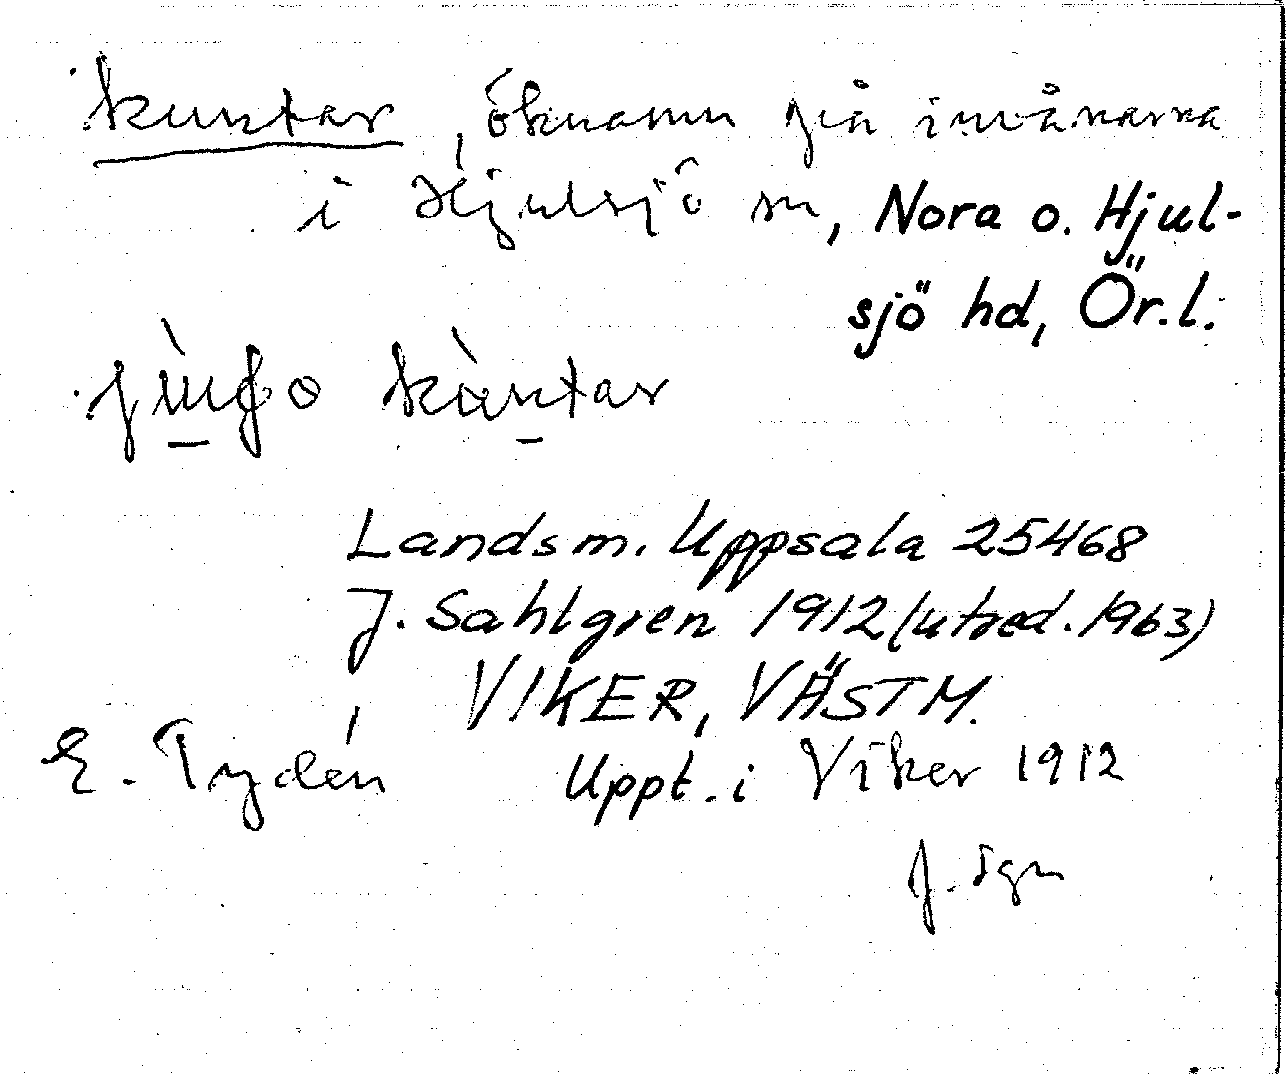 kuntar, öknamn på invånarna
i Hjulsjö sn, Nora o. Hjul-
sjö hd, Ör.l.
kùntar
Landsm. Uppsala 25468
J. Sahlgren 1912 (utred. 1963)
VIKER, VÄSTM.
E. Tydén Uppt. i Viker 1912
J. Sgn